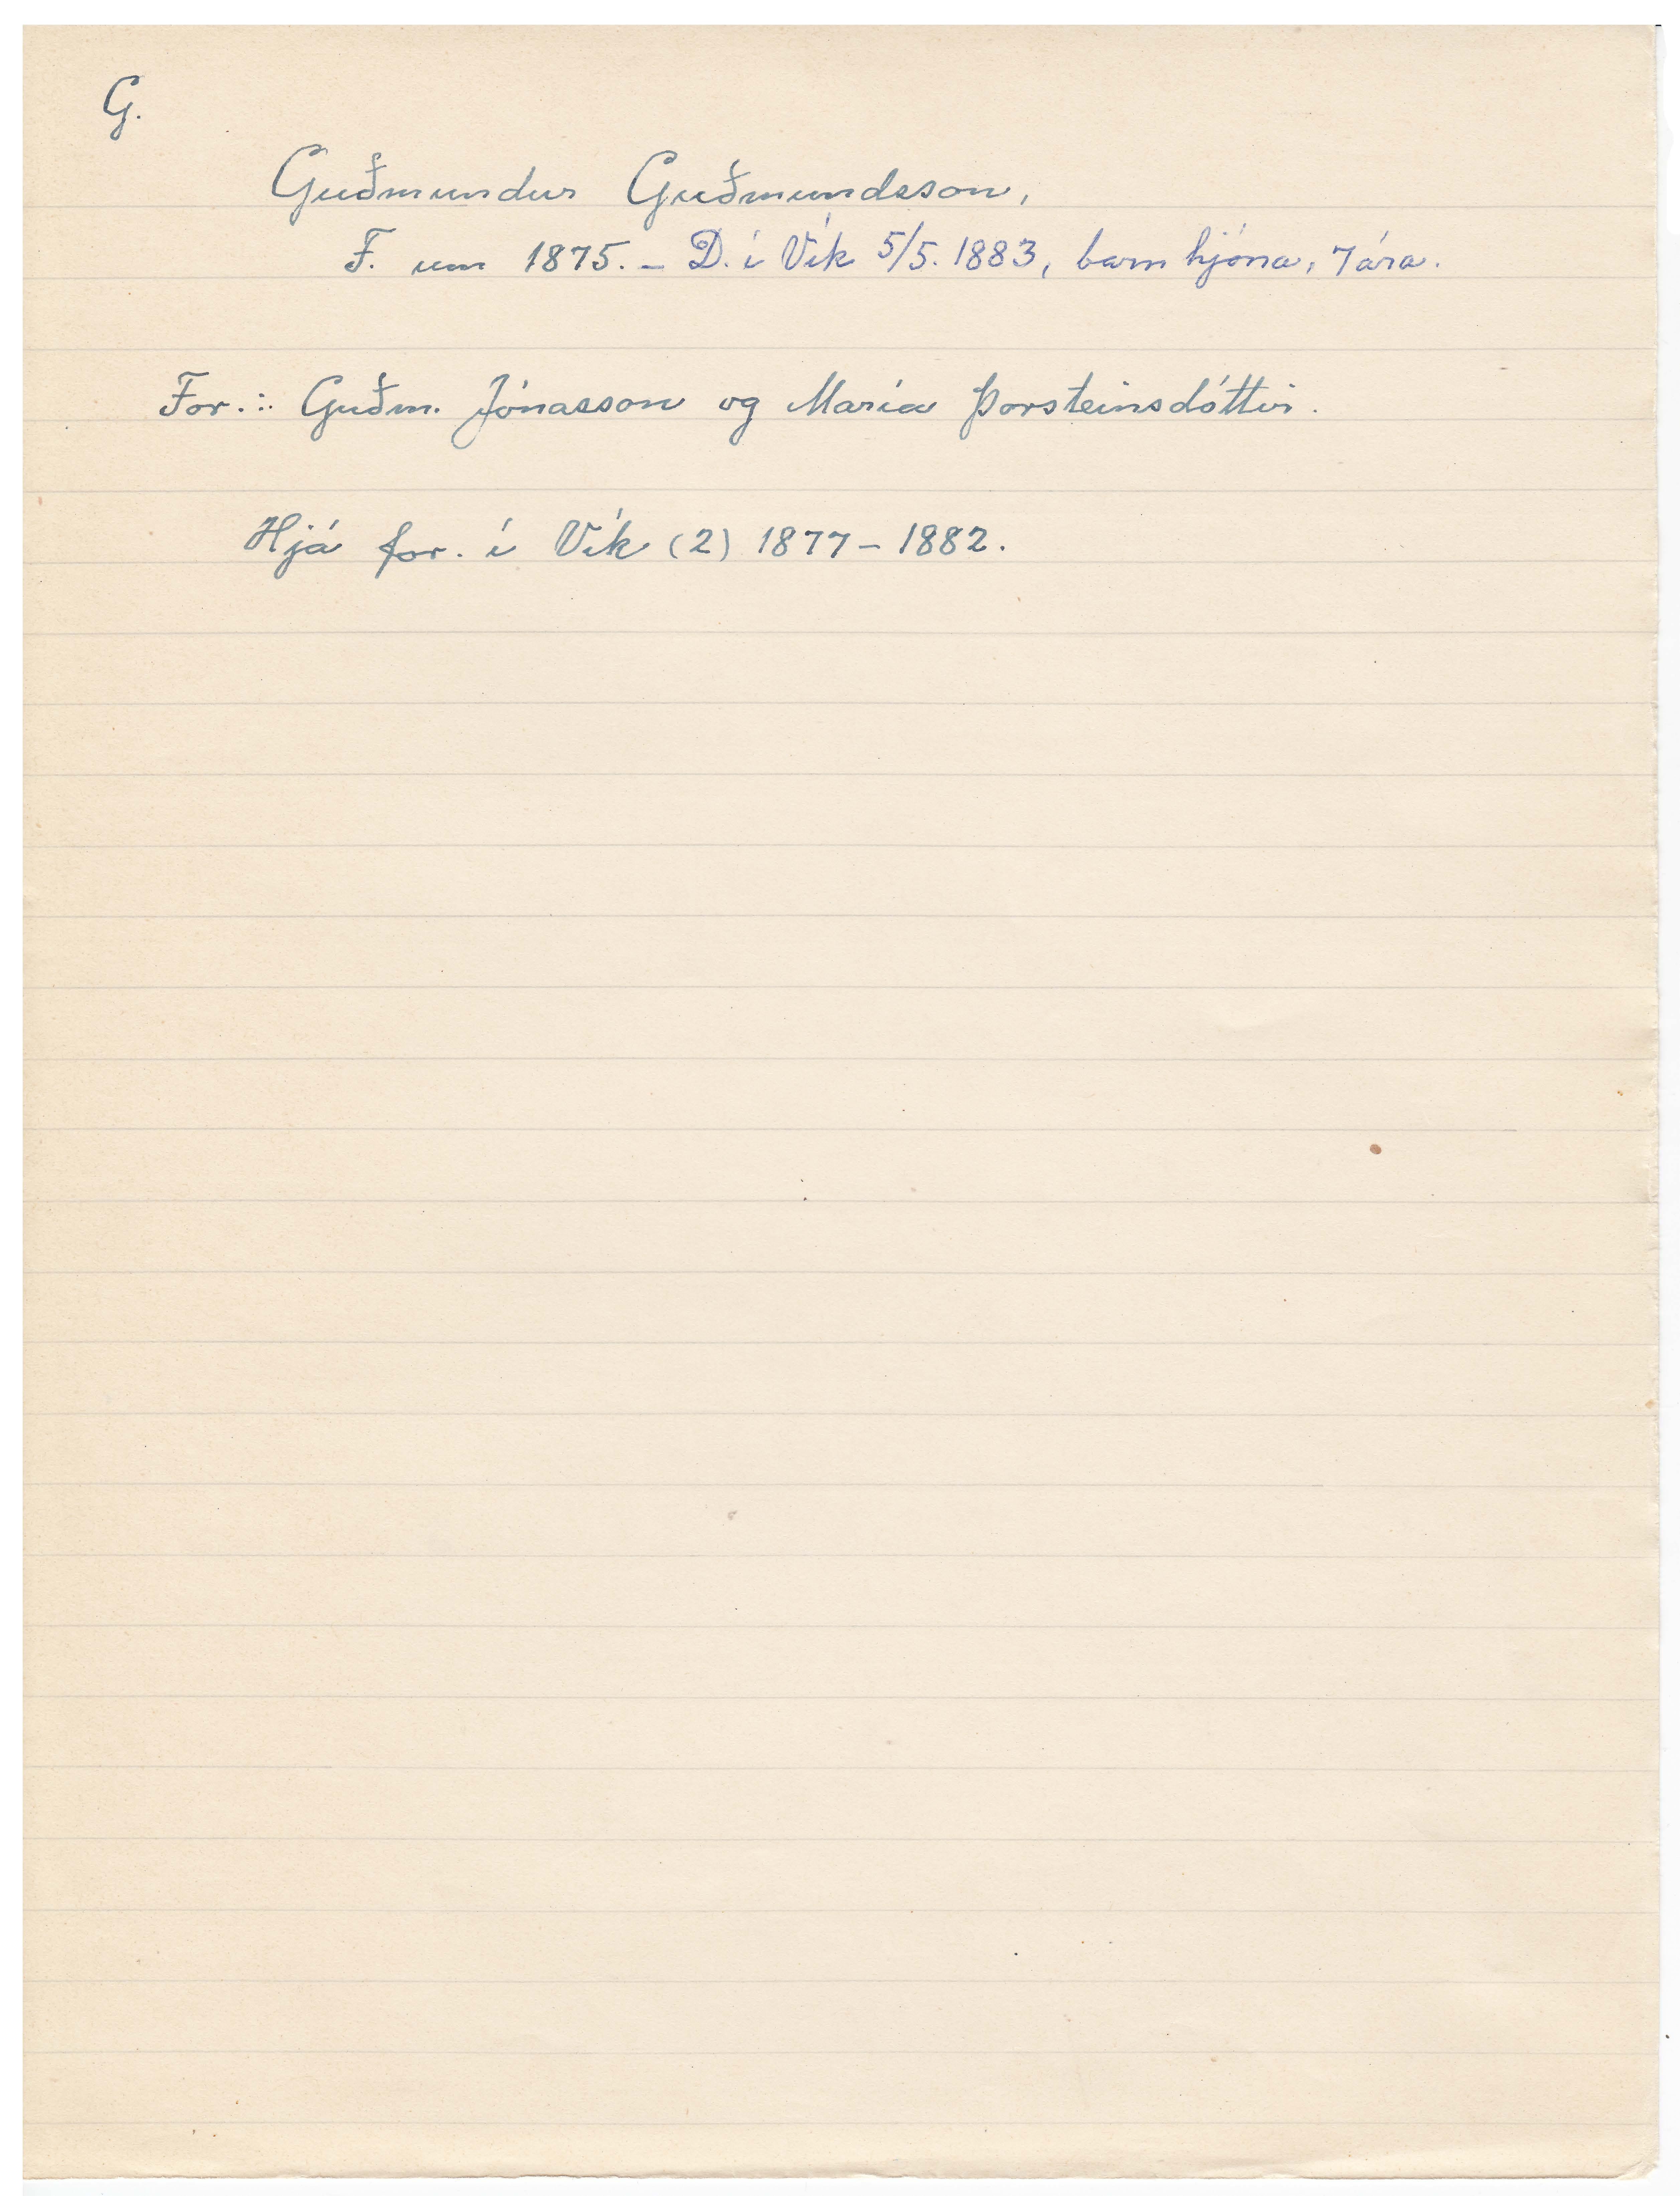 G.
Guðmundur Guðmundsson,
F. um 1875. – D. í Vík 5/5. 1883, barn hjóna, 7 ára.
For.:. Guðm. Jónasson og María Þorsteinsdóttir.
Hjá for. í Vík (2) 1877 – 1882.